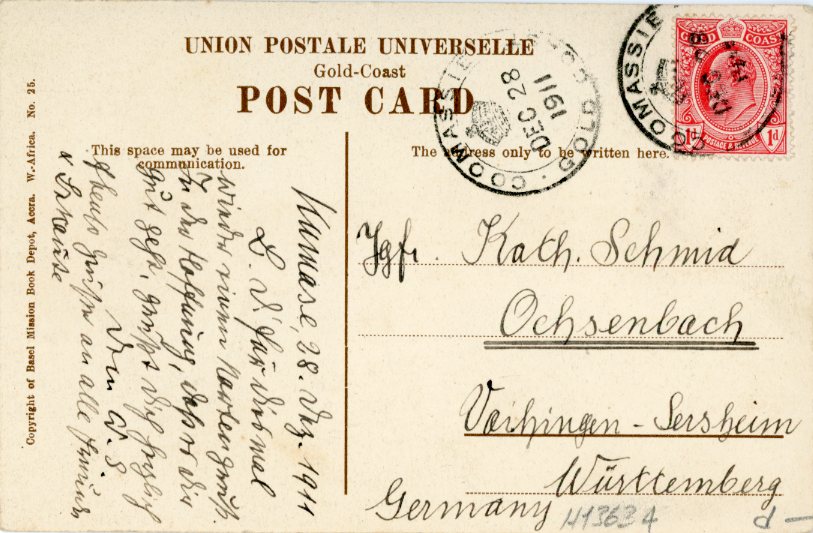 UNION POSTALE UNIVERSELLE
Gold-Coast
POST CARD
This space may be used for
communication.
The address only to be written here.
COOMASSIE · GOLD CO
DEC 28
1911
COOMASSIE
GOLD COAST
1d POSTAGE & REVENUE 1d
Copyright of Basel Mission Book Depot, Accra. W.-Africa. No. 25.
Kumase, 28. Dez. 1911
L. D. für diesmal
wieder einen Kartengruß.
In der Hoffnung, daß es dir
gut geht, grüßt dich herzlich
Dein W. S.
Grüße an alle
Jgfr. Kath. Schmid
Ochsenbach
Vaihingen-Sersheim
Württemberg
Germany
H13634
d —